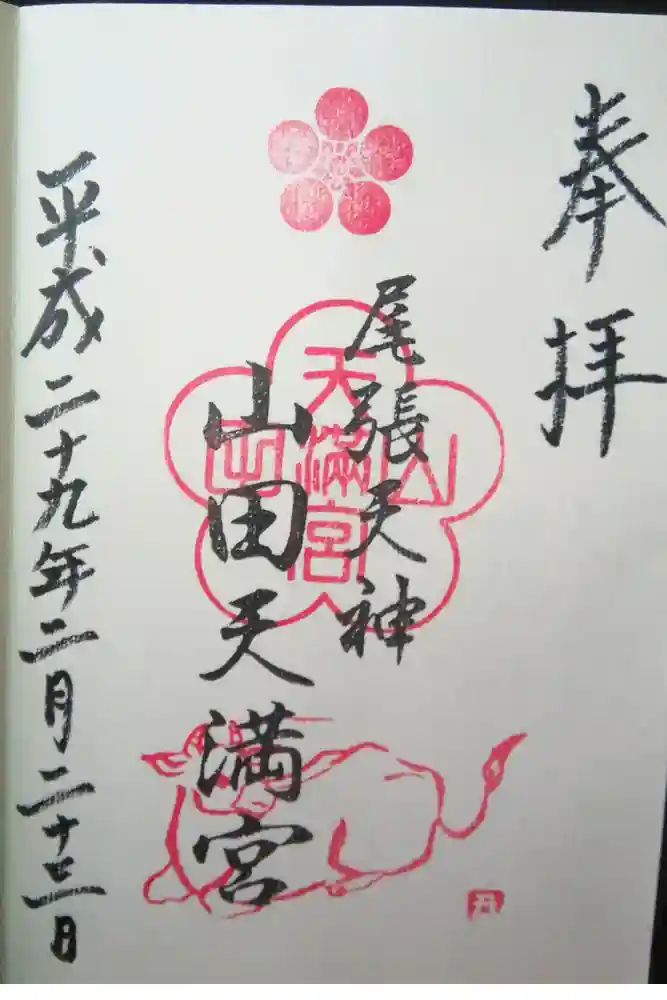 奉拝
尾張天神
山田天満宮
山田
天満宮
平成二十九年二月二十三日